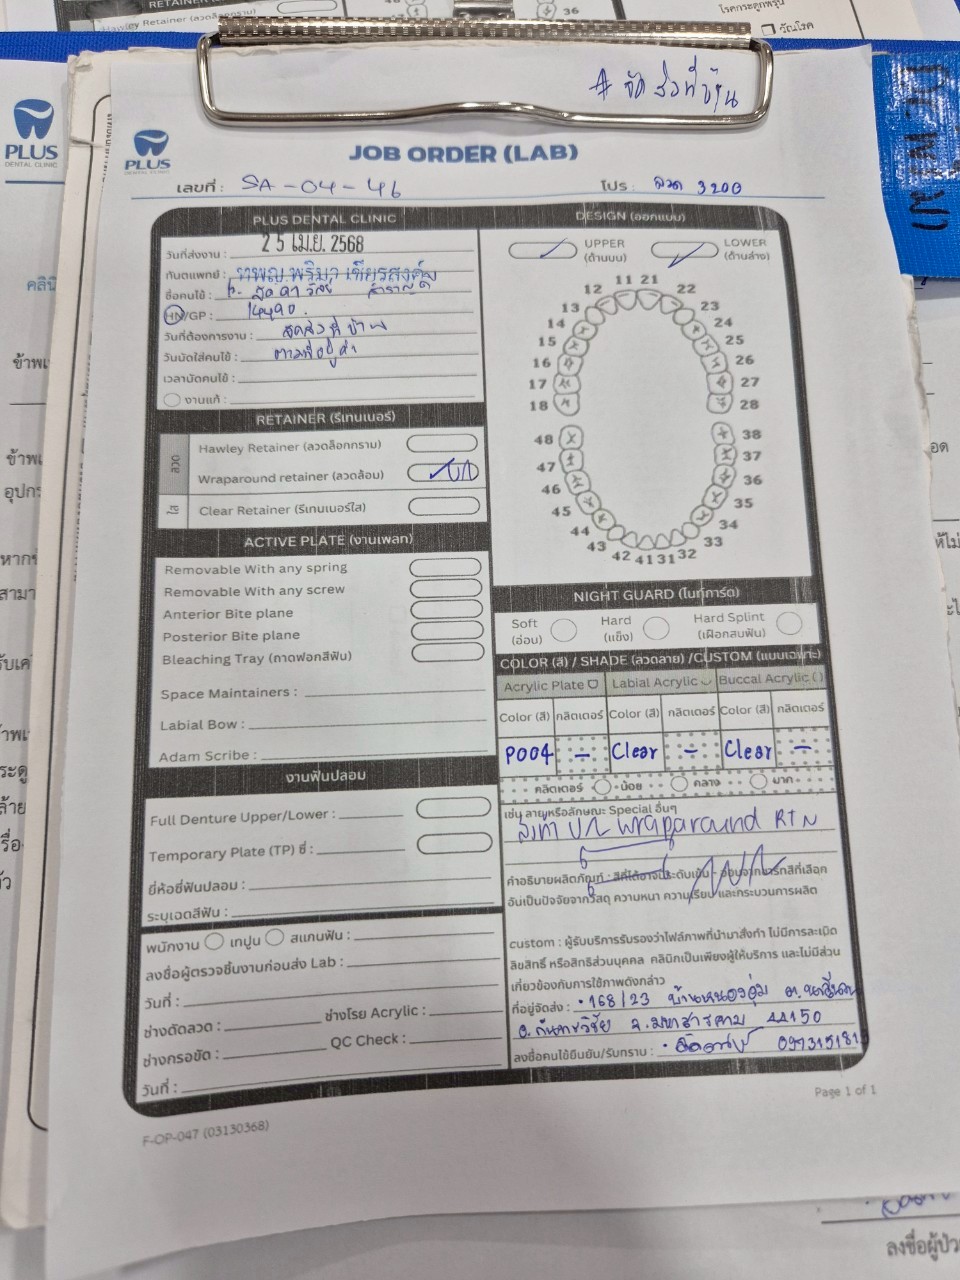 # จัดส่งที่บ้าน
PLUS
DENTAL CLINIC
PLUS
JOB ORDER (LAB)
เลขที่ : SA-04-46
โปร : ลวด 3200
PLUS DENTAL CLINIC
วันที่ส่งงาน : 25 เม.ย. 2568
ทันตแพทย์ :
ชื่อคนไข้ :
HN/GP : 14490
วันที่ต้องการงาน : จัดส่งที่บ้าน
วันนัดใส่คนไข้ :
เวลานัดคนไข้ :
งานแก้ :
RETAINER (รีเทนเนอร์)
ลวด
Hawley Retainer (ลวดล็อกกราม)
Wraparound retainer (ลวดล้อม)
ใส
Clear Retainer (รีเทนเนอร์ใส)
ACTIVE PLATE (งานเพลท)
Removable With any spring
Removable With any screw
Anterior Bite plane
Posterior Bite plane
Bleaching Tray (ถาดฟอกสีฟัน)
Space Maintainers :
Labial Bow :
Adam Scribe :
งานฟันปลอม
Full Denture Upper/Lower :
Temporary Plate (TP) ซี่ :
ยี่ห้อซี่ฟันปลอม :
ระบุเฉดสีฟัน :
พนักงาน เทปูน สแกนฟัน :
ลงชื่อผู้ตรวจชิ้นงานก่อนส่ง Lab :
วันที่ :
ช่างดัดลวด : ช่างโรย Acrylic :
ช่างกรอขัด : QC Check :
วันที่ :
DESIGN (ออกแบบ)
UPPER (ด้านบน)
LOWER (ด้านล่าง)
11 21
12 22
13 23
14 24
15 25
16 26
17 27
18 28
48 38
47 37
46 36
45 35
44 34
43 33
42 41 31 32
NIGHT GUARD (ไนท์การ์ด)
Soft (อ่อน)
Hard (แข็ง)
Hard Splint (เฝือกสบฟัน)
COLOR (สี) / SHADE (ลวดลาย) /CUSTOM (แบบเฉพาะ)
Acrylic Plate Labial Acrylic Buccal Acrylic ( )
Color (สี) กลิตเตอร์ Color (สี) กลิตเตอร์ Color (สี) กลิตเตอร์
P004 - Clear - Clear -
กลิตเตอร์ น้อย กลาง มาก
เช่น ลายหรือลักษณะ Special อื่นๆ
U/L wraparound RTN
คำอธิบายผลิตภัณฑ์ : สีที่ได้อาจมีระดับเข้ม - อ่อนจากชาร์ทสีที่เลือก
อันเป็นปัจจัยจากวัสดุ ความหนา ความเรียบ และกระบวนการผลิต
custom : ผู้รับบริการรับรองว่าไฟล์ภาพที่นำมาสั่งทำ ไม่มีการละเมิด
ลิขสิทธิ์ หรือสิทธิส่วนบุคคล คลินิกเป็นเพียงผู้ให้บริการ และไม่มีส่วน
เกี่ยวข้องกับการใช้ภาพดังกล่าว
ที่อยู่จัดส่ง : 168/23
อ.กันทรวิชัย จ.มหาสารคาม 44150
ลงชื่อคนไข้ยืนยัน/รับทราบ :
Page 1 of 1
F-OP-047 (03130368)